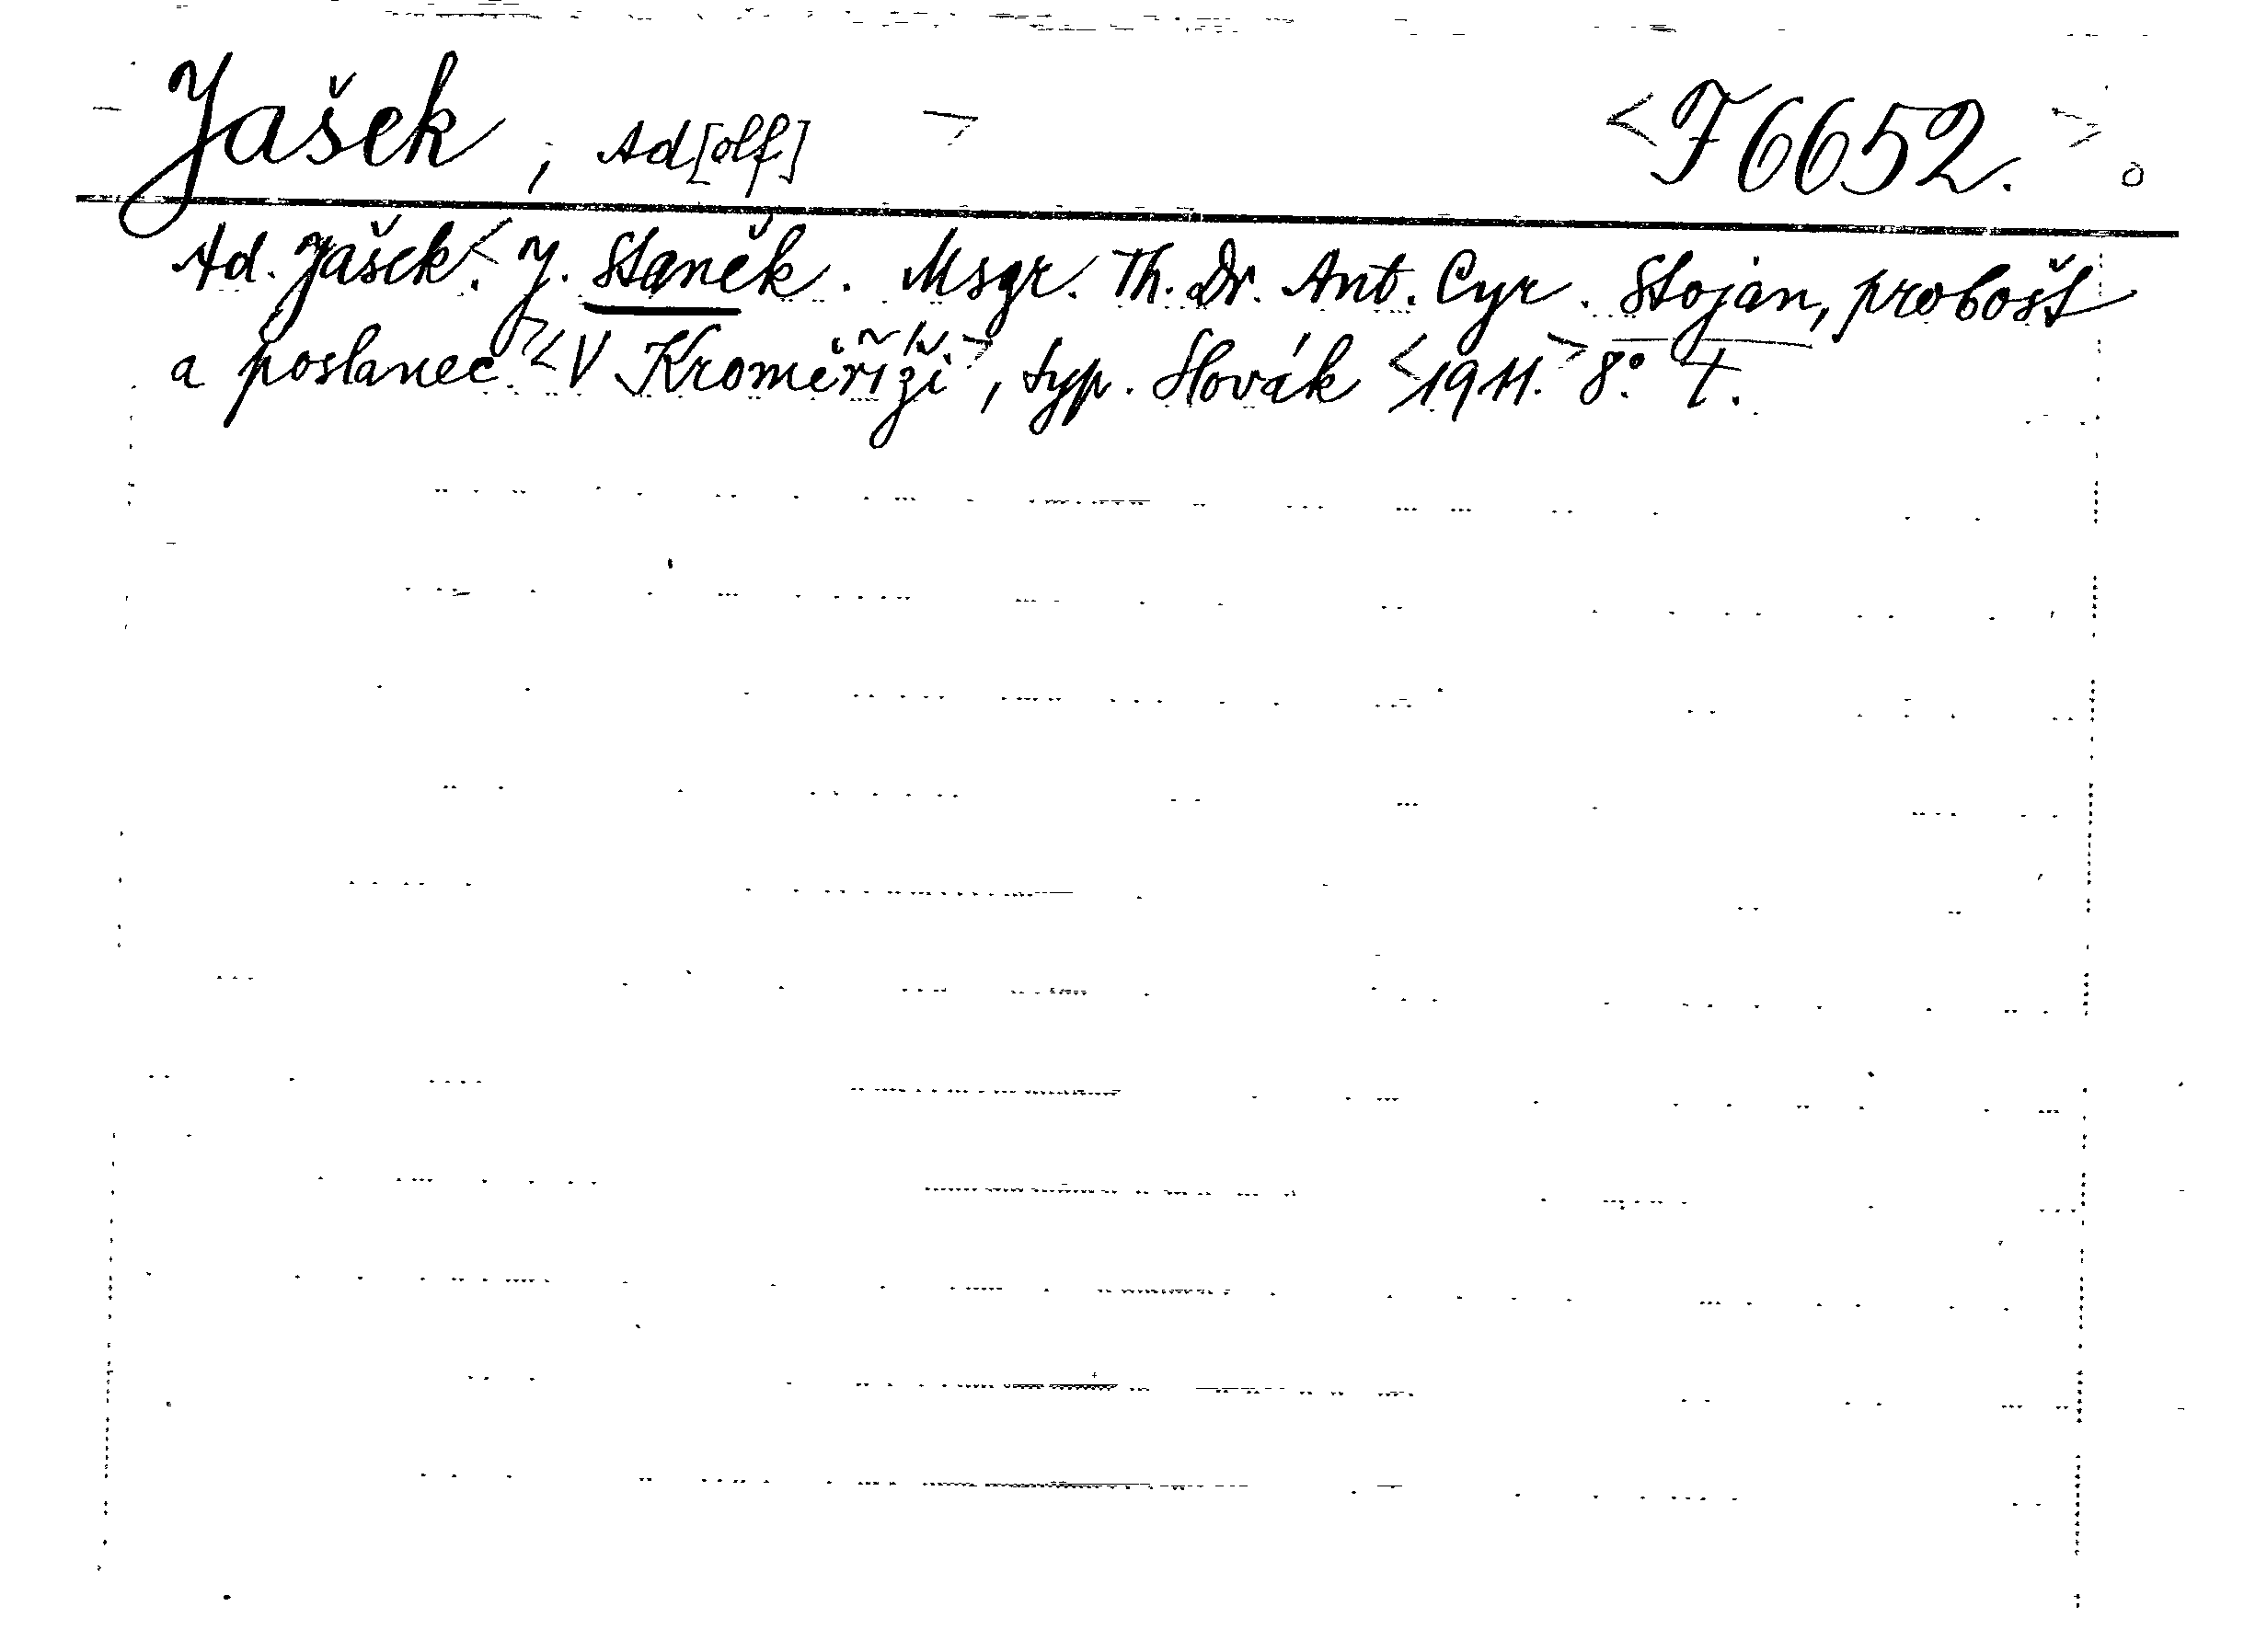 Jašek, Ad[olf] > <F 6652. >
Ad. Jašek. < J. Staněk. Msgr. Th. Dr. Ant. Cyr. Stojan, probošt
a poslanec. > < V Kroměříži >, typ. Slovák < 1911. > 8°.